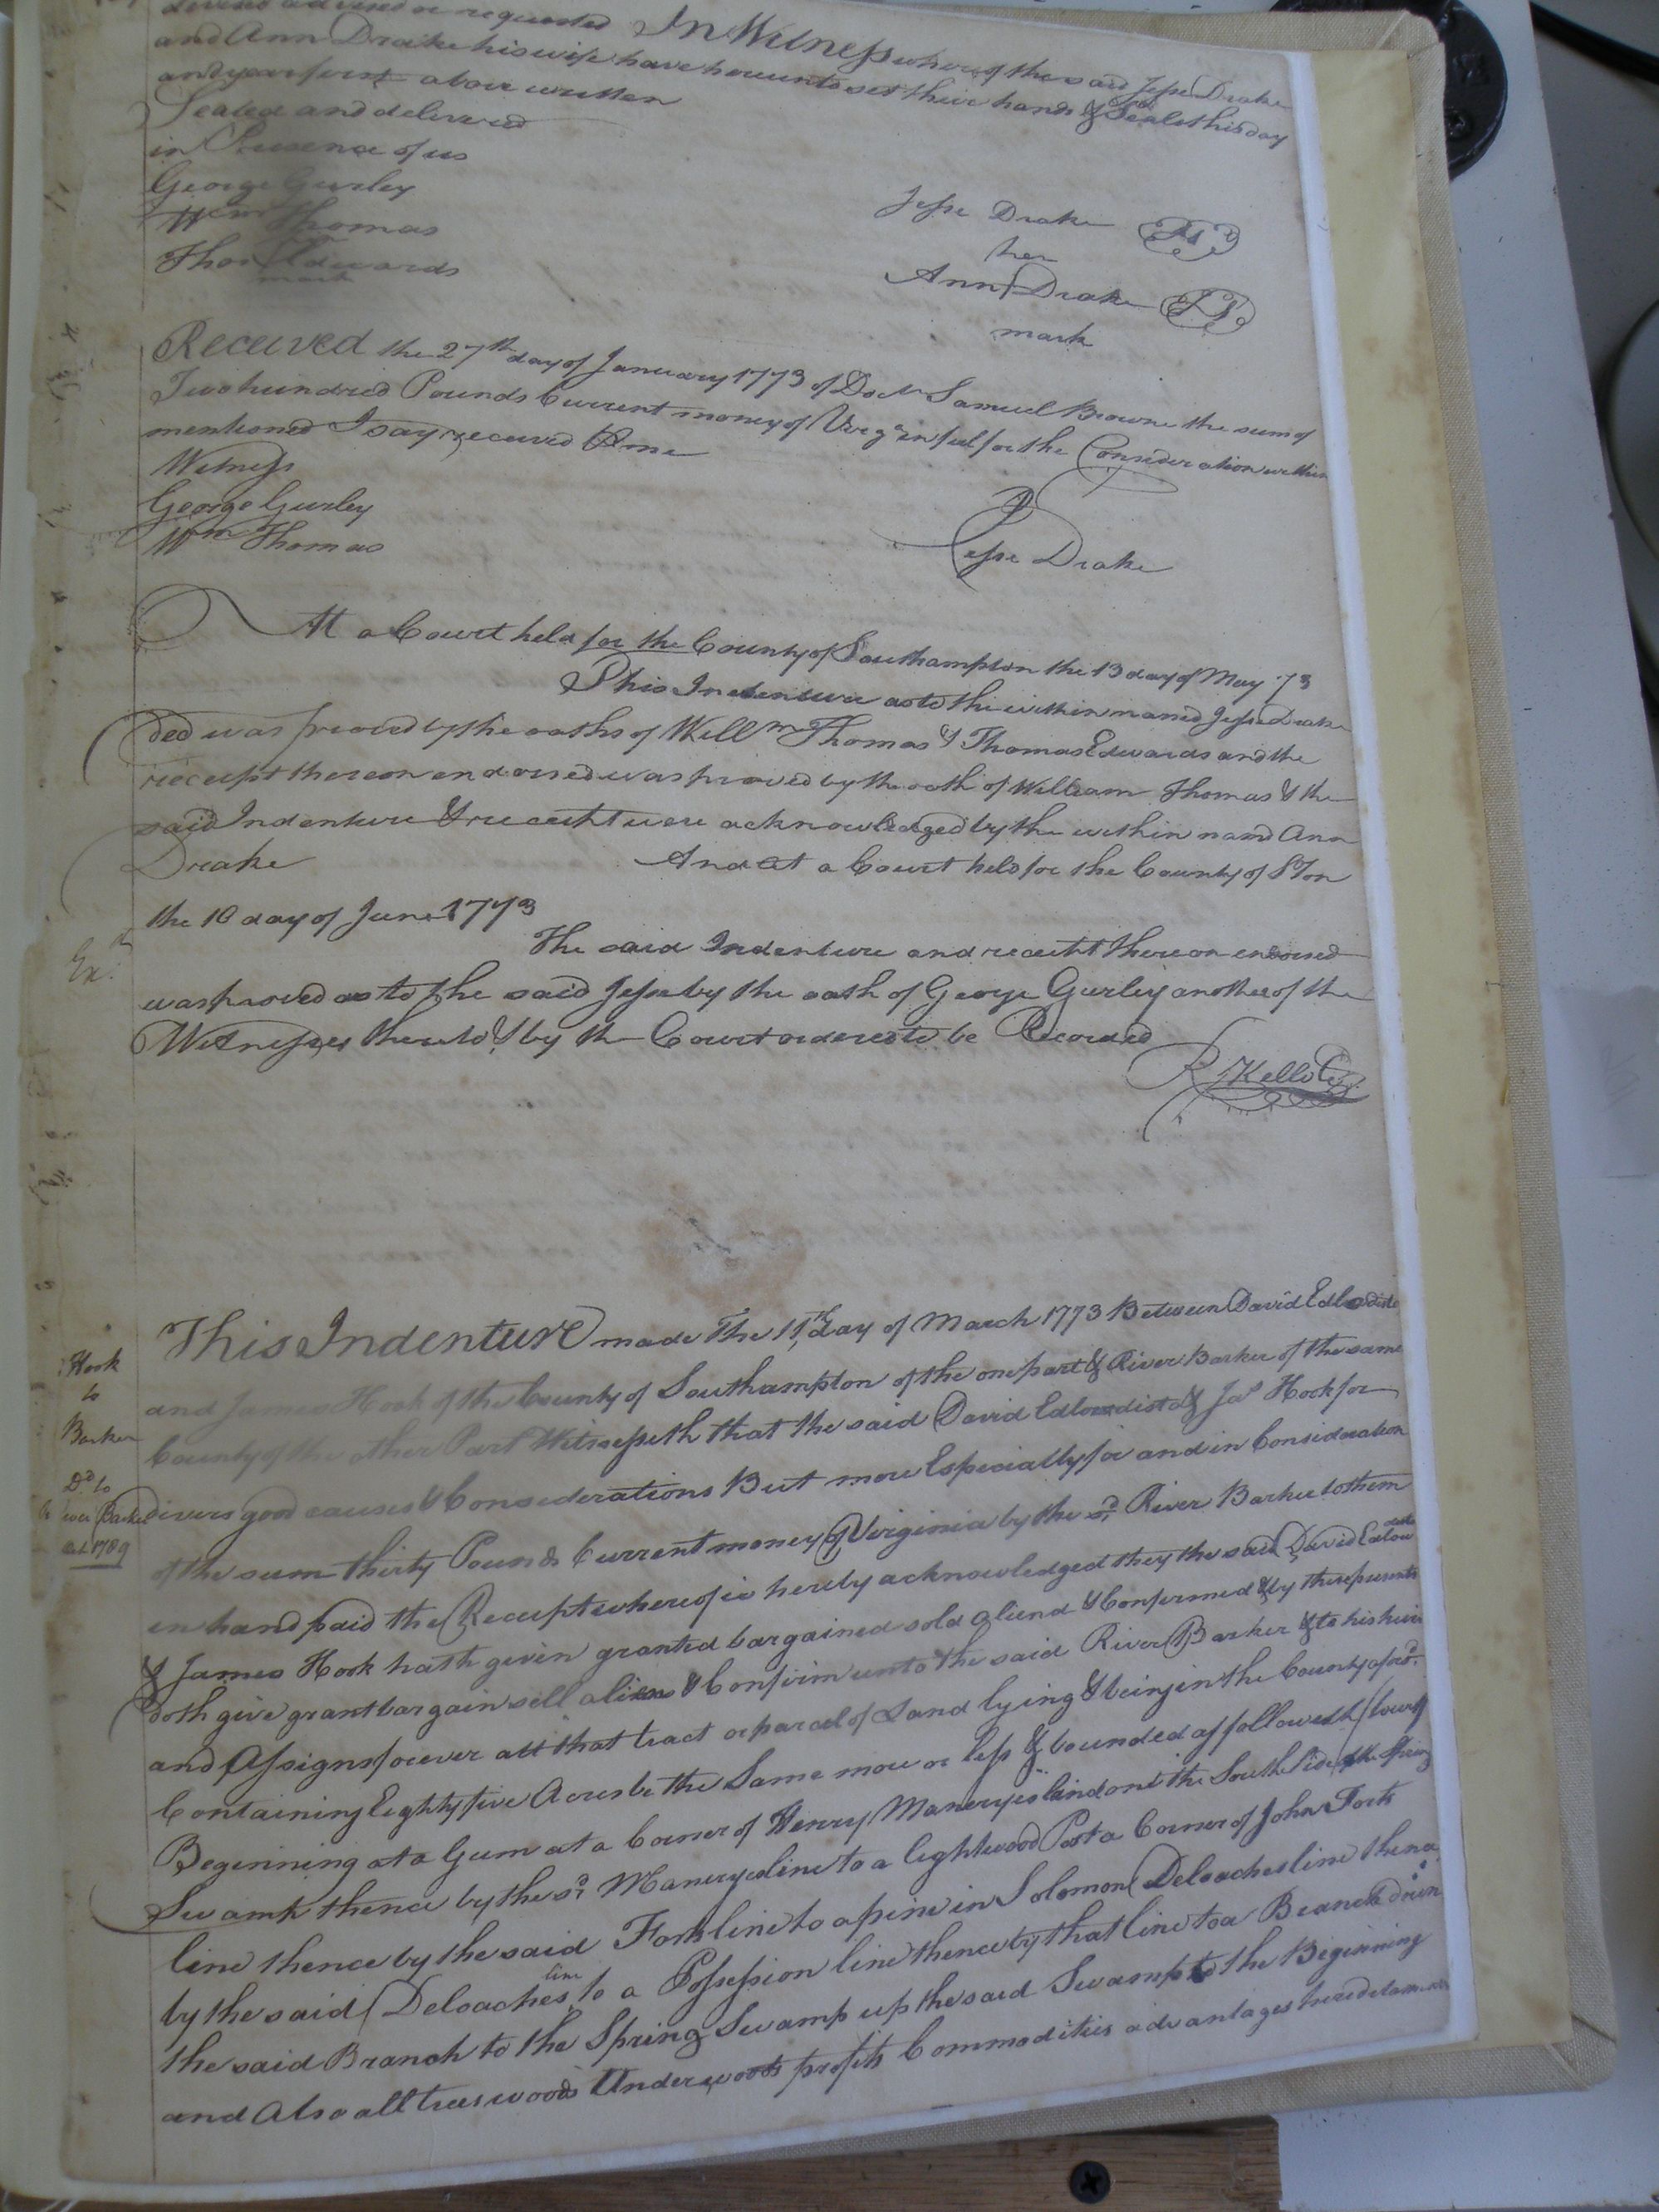 devised advised or requested In Witness whereof the said Jesse Drake
and Ann Drake his wife have hereunto set their hands & Seals this day
and year first above written
Sealed and delivered
in Presence of us
George Gurley
Wm Thomas
Thos Edwards
mark
Jesse Drake LS
her
Ann Drake LS
mark
Received the 27th day of January 1773 of Doctr Samuel Browne the sum of
Two hundred Pounds Current money of Virga in full for the Consideration within
mentioned I say received P me
Witness
George Gurley
Wm Thomas
Jesse Drake
At a Court held for the County of Southampton the 13 day of May 73
This Indenture as to the within named Jesse Drake
ded was proved by the oaths of Willm Thomas & Thomas Edwards and the
receipt thereon endorsed was proved by the oath of William Thomas & the
said Indenture & receipt were acknowledged by the within namd Ann
Drake And at a Court held for the County of STon
the 10 day of June 1773
Exd
The said Indenture and receipt thereon endorsed
was proved as to the said Jesse by the oath of George Gurley another of the
Witnesses thereto & by the Court ordered to be Recorded
R Kello Ck
This Indenture made The 11th day of March 1773 Between David Edlowdist
and James Hook of the County of Southampton of the one part & River Barker of the same
County of the other Part Witnesseth that the said David Edlowdist & Jas Hook for
divers good causes & Considerations But more Especially for and in Consideration
of the sum thirty Pounds Current money of Virginia by the sd River Barker to them
in hand paid the Receipt whereof is hereby acknowledged they the said David Edlow
& James Hook hath given granted bargained sold aliend & Confirmed & by these presents
doth give grant bargain sell alien & Confirm unto the said River Barker & to his heirs
and Assigns forever all that tract or parcel of Land lying & being in the County aforsd
Containing Eighty five Acres be the Same more or less & bounded as followeth (towit)
Beginning at a Gum at a Corner of Henry Manerys land on the South Side of the Spring
Swamp thence by the sd Manerys line to a lightwood Post a Corner of John Forts
line thence by the said Forts line to a pine in Solomon Deloaches line thence
by the said Deloaches line to a Possession line thence by that line to a Branch down
the said Branch to the Spring Swamp up the said Swamp to the Beginning
and Also all trees woods Underwoods profits Commodities advantages hereditaments
Hook
to
Barker
Dd to
River Barker
1789